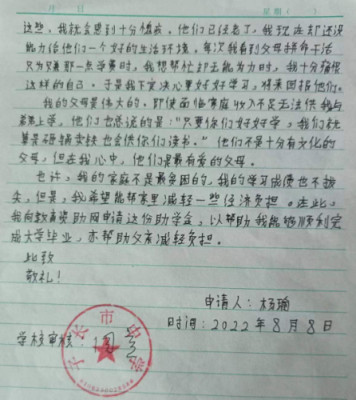 月 日 星期( )
这些，我就会感到十分愧疚，他们已经老了，我现在却还没
能力给他们一个好的生活环境。每次我看到父母拼命干活
只为只着那一点学费时，我想帮忙却无能为力时，我十分痛恨
这样的自己，于是我下定决心要好好学习，将来回报他们。
我的父母是伟大的，即使面临家庭收入不足无法供我与
弟上学，他们也总说的是：“只要你们好好学，我们就
算是砸锅卖铁也会供你们读书。”他们不是十分有文化的
父母，但在我心中，他们是最有爱的父母。
也许，我的家庭不是最贫困的，我的学习成绩也不拔
尖，但是，我希望能帮家里减轻一些经济负担。在此，
我向教育资助网申请这份助学金，以帮助我能够顺利完
成大学毕业，亦帮助父亲减轻负担。
此致
敬礼！
申请人：杨瑜
时间：2022年8月8日
学校审核：
平 市中学